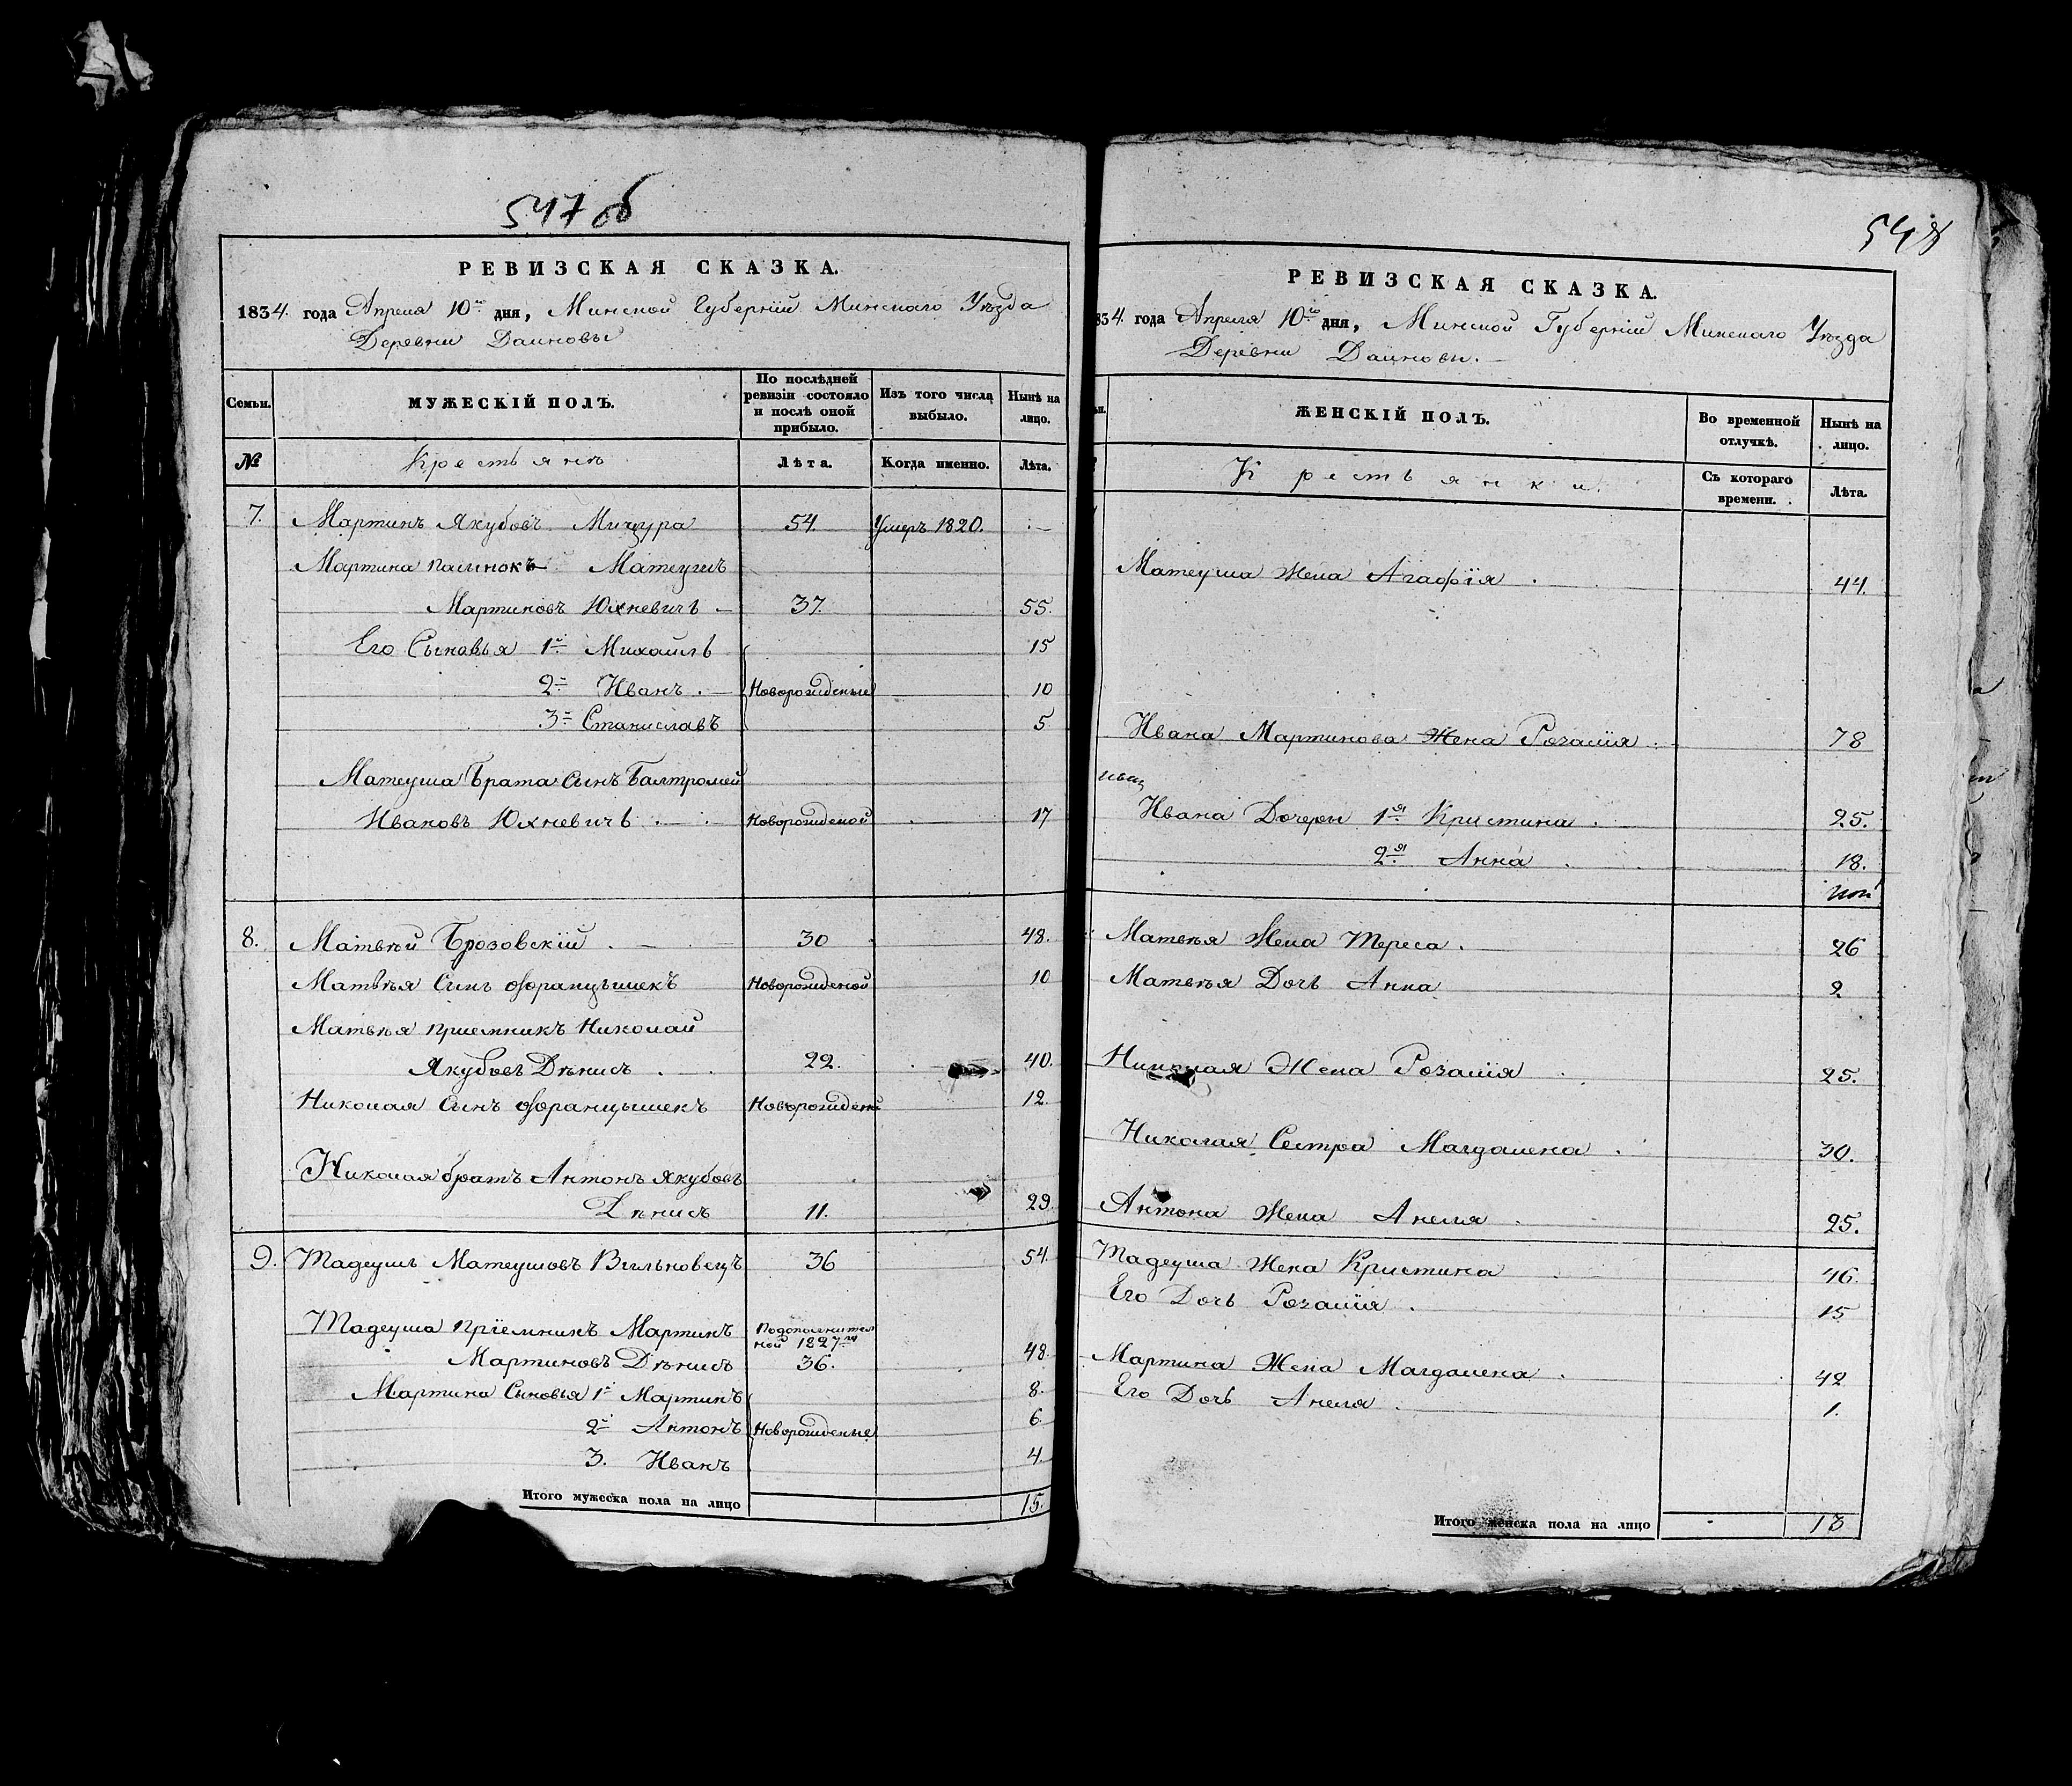 547 об
РЕВИЗСКАЯ СКАЗКА.
1834. года Апреля 10го дня, Минской Губерніи Минскаго Уѣзда
Деревни Даиновы
Семьи. МУЖЕСКІЙ ПОЛЪ. По послѣдней ревизіи состояло и послѣ оной прибыло. Изъ того числа выбыло. Нынѣ на лицо.
№ Крестьянъ Лѣта. Когда именно. Лѣта.
7. Мартинъ Якубовъ Мицура 54. Умеръ 1820. —
Мартина пасинокъ Матеушъ
Мартиновъ Юхневичъ 37. 55.
Его Сыновья 1й Михаилъ 15
2й Иванъ Новорожденые 10
3й Станиславъ 5
Матеуша Брата Сынъ Балтромей
Ивановъ Юхневичъ Новорожденой 17
8. Матвѣй Брозовскій 30 48.
Матвѣя Сынъ Францышекъ Новорожденой 10
Матвѣя приемникъ Николай
Якубовъ Дѣнисъ 22. 40.
Николая Сынъ Францышекъ Новорожденй 12.
Николая братъ Антонъ Якубовъ
Дѣнисъ 11. 29.
9. Тадеушъ Матеушовъ Вильковецъ 36 54.
Тадеуша пріемникъ Мартинъ Подополнител
ной 1827го
Мартиновъ Дѣнисъ 36. 48
Мартина Сыновья 1й Мартинъ 8.
2й Антонъ Новорожденые 6.
3. Иванъ 4.
Итого мужеска пола на лицо 15.
548
РЕВИЗСКАЯ СКАЗКА.
834. года Апреля 10го дня, Минской Губерніи Минскаго Уѣзда
Деревни Даиновы.
ьи. ЖЕНСКІЙ ПОЛЪ. Во временной отлучкѣ. Нынѣ на лицо.
Крестьянки. Съ котораго времени. Лѣта.
Матеуша Жена Агафія 44.
Ивана Мартинова Жена Розалія 78
Ивана Дочери 1я Кристина 25.
2я Анна 18.
Матвѣя Жена Тереса 26
Матвѣя Дочь Анна 2
Николая Жена Розалія 25.
Николая Сестра Магдалена 30.
Антона Жена Анеля 25.
Тадеуша Жена Кристина 46.
Его Дочь Розалія 15
Мартина Жена Магдалена 42
Его Дочь Анеля 1.
Итого женска пола на лицо 13